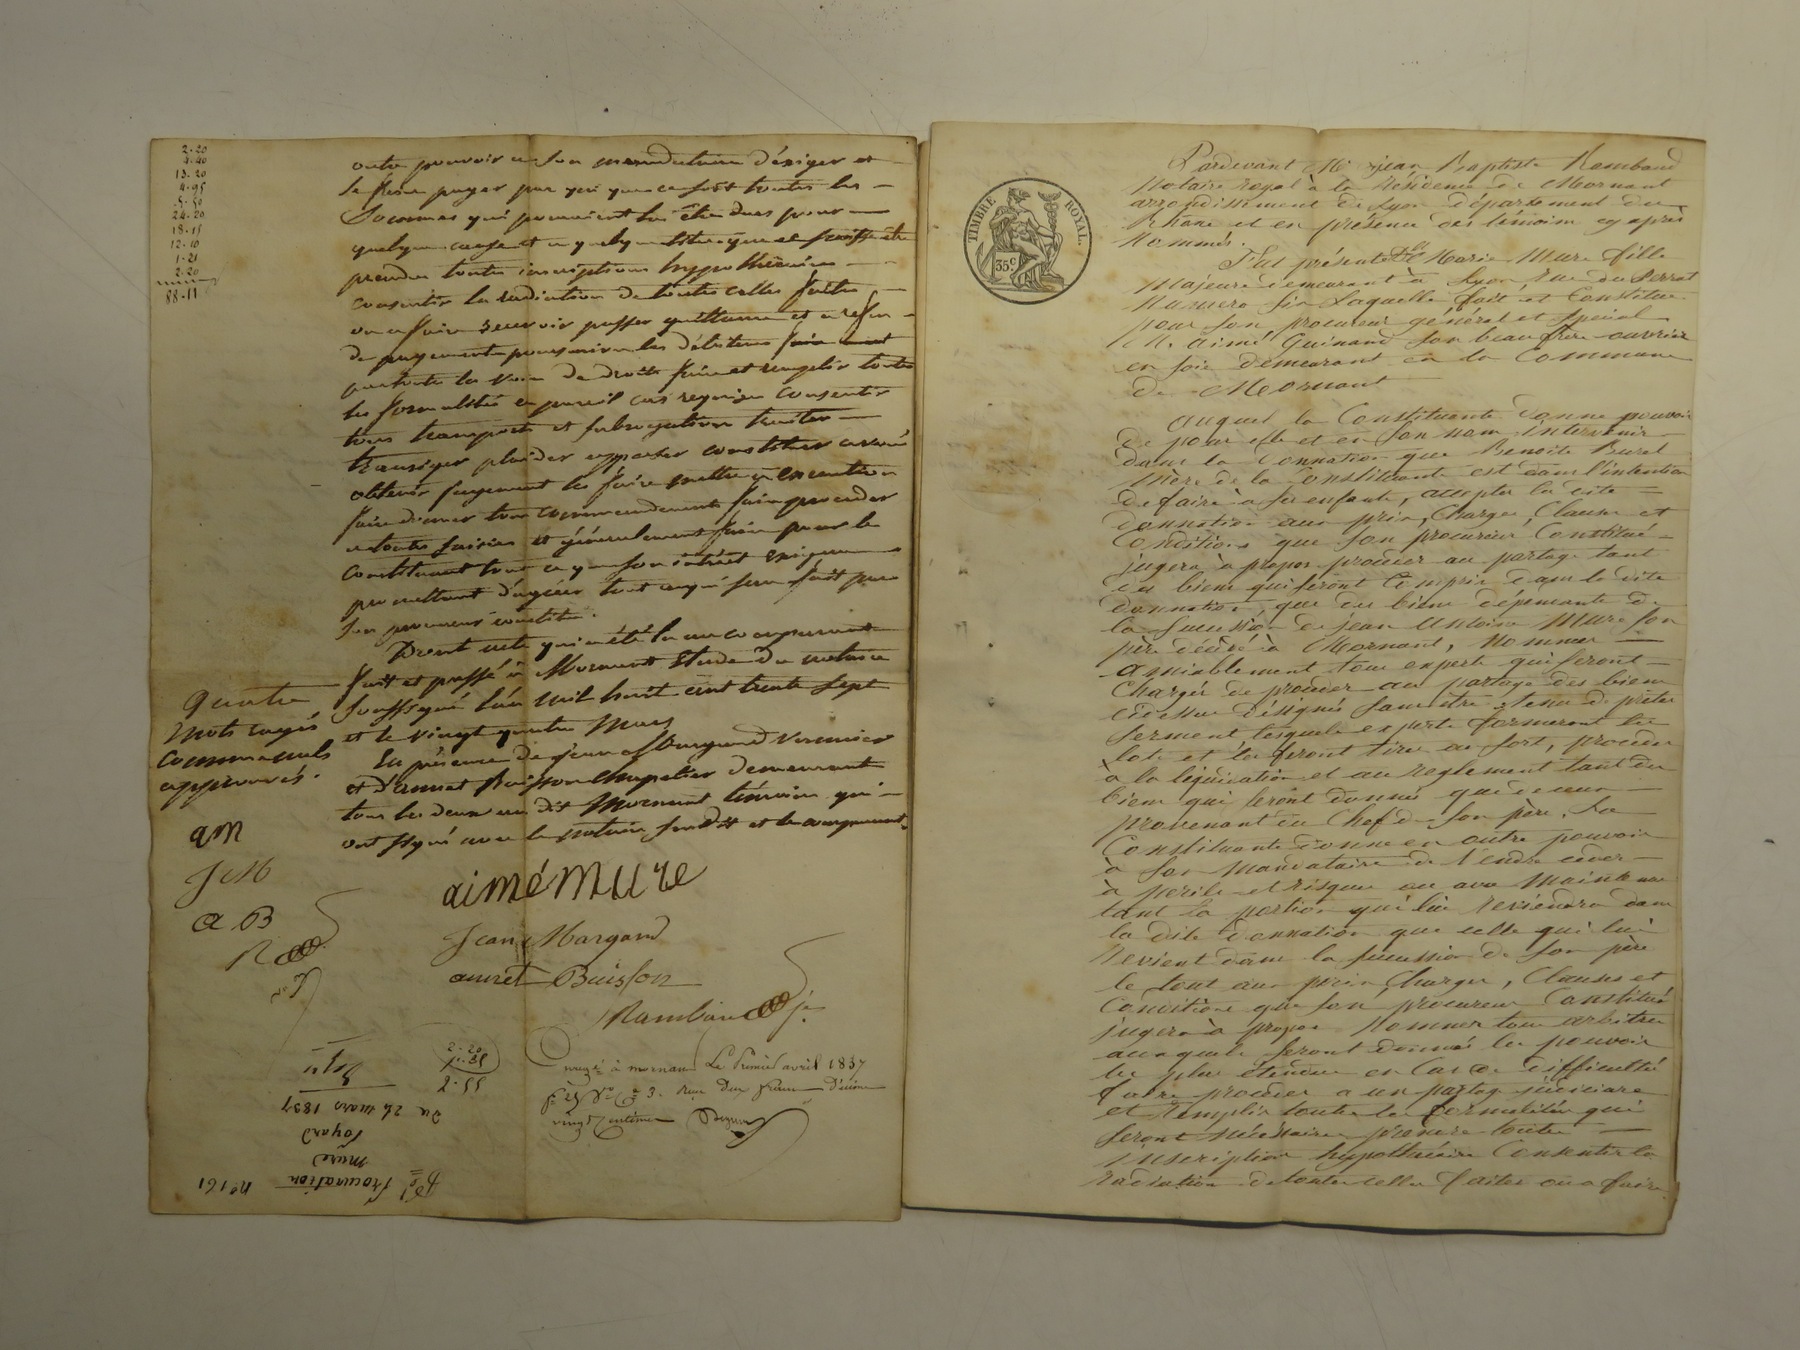 2-20
4-40
13-20
4-95
5-50
24-20
18-15
12-10
1-21
2-20
88-11
outre pouvoir à son mandataire d'exiger et
se faire payer par qui que ce soit toutes les
Sommes qui pourraient lui être dues pour
quelque cause et à quelque titre que ce puisse être
prendre toutes inscriptions hypothécaires
consentir la radiation de toutes celles faites
ou a faire recevoir passer quittance et a refus
de payement poursuivre les débiteurs
par toute les voies de droits faire et remplir toutes
les formalités en pareil cas requises consentir
tous transports et subrogations traiter
transiger plaider opposer constituer avoué
obtenir jugement les faire mettre à exécution
faire donner tous commandements faire procéder
a toutes saisies et généralement faire pour le
constituant tout ce que son intérêt exigera
promettant d'agréer tout ce qui sera fait par
son procureur constitué.
Dont acte qui a été lu au comparant
fait et passé à Mornant Etude du notaire
soussigné l'an mil huit cent trente sept
et le vingt quatre Mars
En présence de jean Margand
et d'annet Buisson chapelier demeurant
tous les deux au dit Mornant témoins qui
ont signé avec le notaire susdit et le comparant.
quatre
mots rayés
comme nuls
approuvés.
am
J M
a B
R
aimé mure
Jean Margand
annet Buisson
Rambaud jne
2-20
-35
2-55
à mornant Le Premier avril 1837
fo 25 Vo Co 3. reçu Deux francs Dixième
vingt Centimes
no 161
Procuration
mure
Goyard
du 24 mars 1837
TIMBRE ROYAL.
35 c.
Pardevant Me jean Baptiste Rambaud
Notaire royal à la Résidence de Mornant
arrondissement de Lyon département du
Rhône et en présence des témoins cy après
Nommés.
Fut présente Dlle Marie Mure fille
Majeure demeurant à Lyon rue du Perrat
Numero six Laquelle fait et Constitue
pour son procureur général et spécial
M. aimé Guinand son beau frère ouvrier
en soie demeurant en la Commune
de Mornant
auquel la Constituante donne pouvoir
de pour elle et en son nom intervenir
dans la Donnation que Benoite Buret
Mère de la Constituante est dans l'intention
de faire à ses enfants, accepter la dite
donnation aux prix, Charges, Clauses et
Conditions que son procureur Constitué
jugera à propos procéder au partage tant
des biens qui seront Compris dans la dite
donnation, que des biens dépendants de
la succession de jean Antoine Mure son
père décédé à Mornant, Nommer
amiablement tous experts qui seront
Chargés de procéder au partage des biens
ci dessus désignés sans être tenus de prêter
serment lesquels experts formeront les
lots et les feront tirer au sort, procéder
à la liquidation et au règlement tant des
biens qui seront donnés que de ceux
provenant du Chef de son père, La
Constituante donne en outre pouvoir
à son Mandataire de Vendre céder
à périls et risques ou avec Maintenue
tant la portion qui lui reviendra dans
la dite donnation que celle qui lui
revient dans la succession de son père
le tout aux prix Charges, Clauses et
Conditions que son procureur Constitué
jugera à propos Nommer tous arbitres
auxquels seront donnés les pouvoirs
les plus étendus en Cas de difficulté
faire procéder a un partage judiciaire
et remplir toutes les formalités qui
seront nécéssaires prendre toutes
inscriptions hypothécaire Consentir la
radiation de toutes celles faites ou a faire